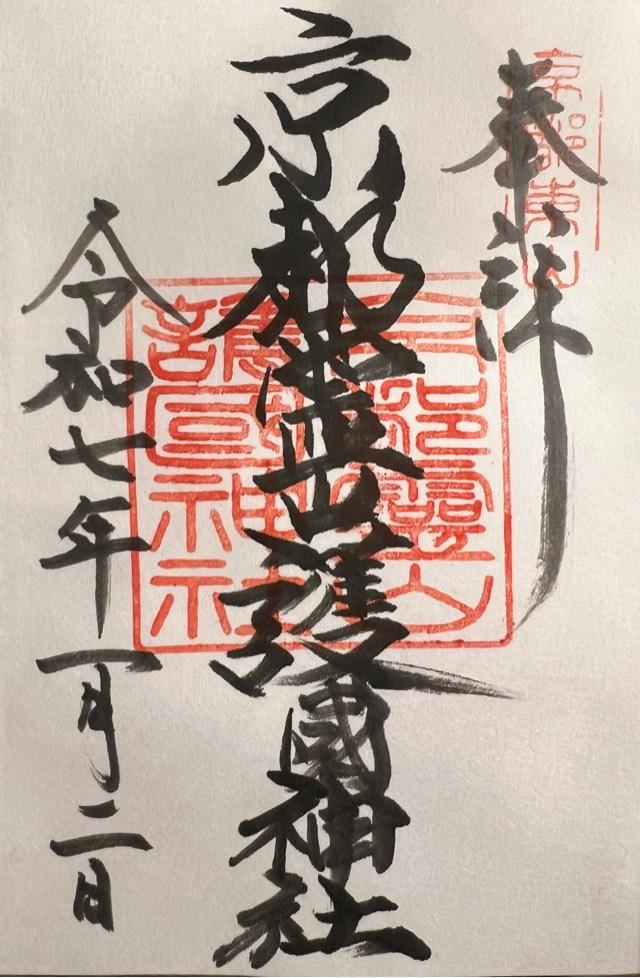 奉拝
京都東山
京都霊山護國神社
京都霊山
護国神社
令和七年一月二日